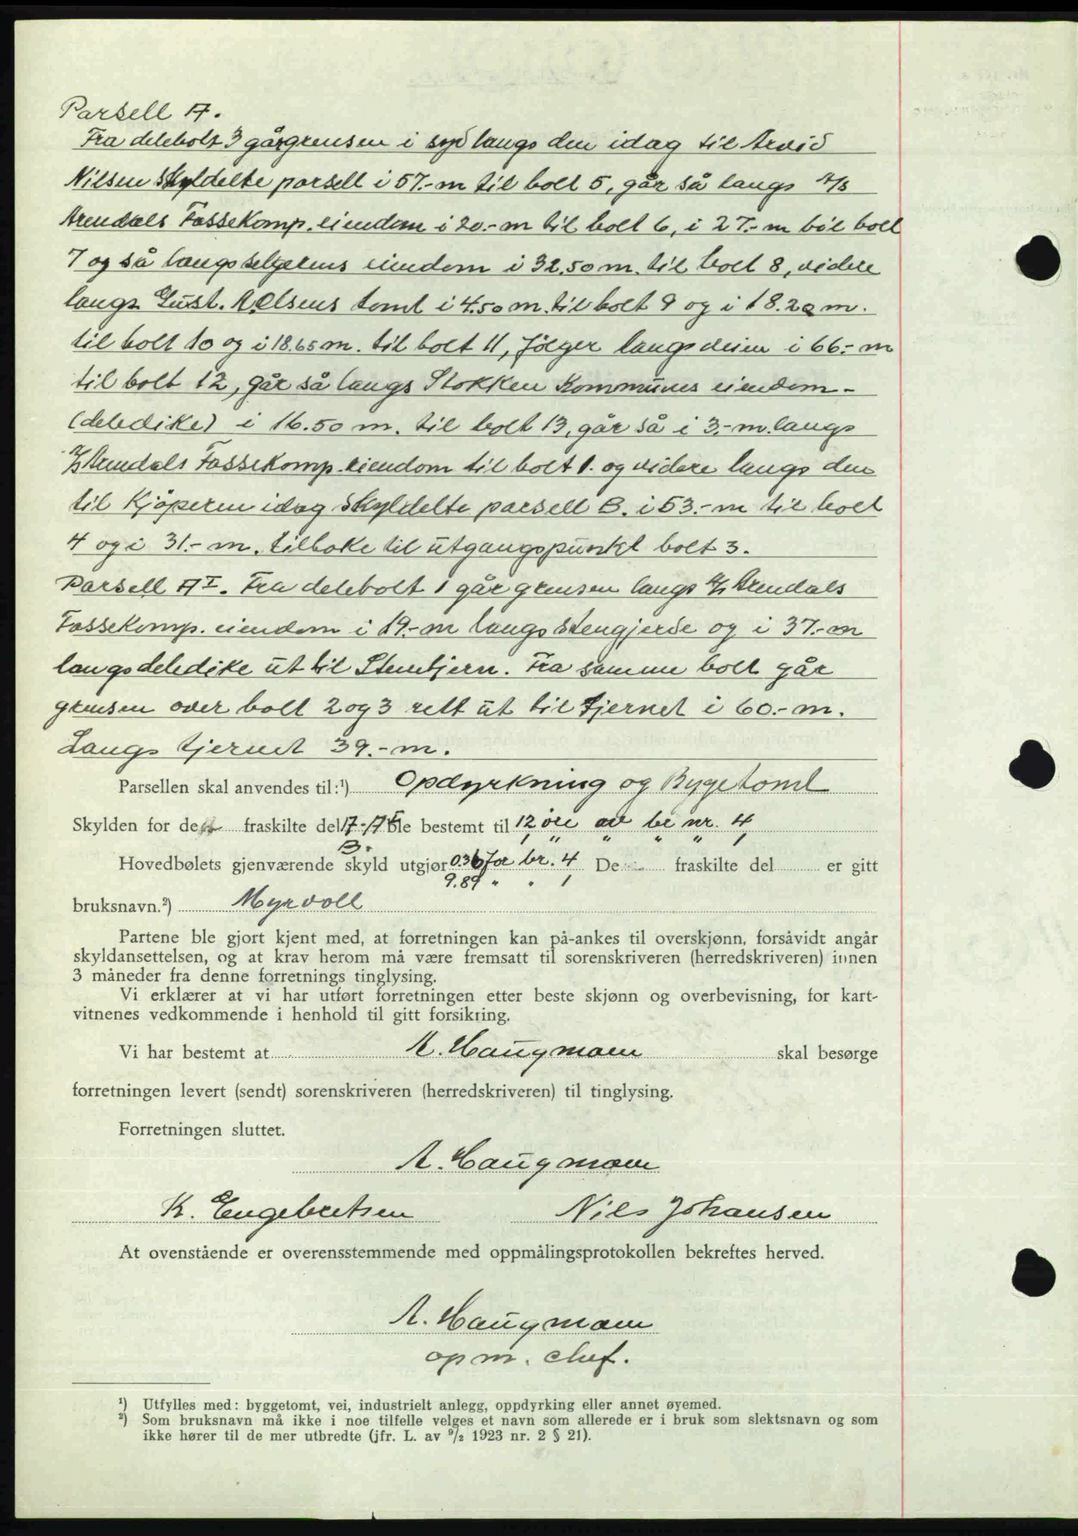 Parsell A.
Fra delebolt 3 går grensen i syd langs den idag til Arvid
Nilsen skyldelte parsell i 57.-m til bolt 5, går så langs A/S
Arendals Fossekomp. eiendom i 20.-m til bolt 6, i 27.-m til bolt
7 og så langs selgerens eiendom i 32.50 m. til bolt 8, videre
langs Gust. A. Olsens tomt i 4.50 m. til bolt 9 og i 18.20 m.
til bolt 10 og i 18.65 m. til bolt 11, følger langs veien i 66.- m
til bolt 12, går så langs Stokken Kommunes eiendom -
(deledike) i 16.50 m. til bolt 13, går så i 3.-m. langs
A/S Arendals Fossekomp. eiendom til bolt 1. og videre langs den
til Kjøperen idag skyldelte parsell B. i 53.-m til bolt
4 og i 31.-m. tilbake til utgangspunkt bolt 3.
Parsell A I. Fra delebolt 1 går grensen langs A/S Arendals
Fossekomp. eiendom i 19.-m langs stengjerde og i 37.-m
langs deledike ut til Stemtjern. Fra samme bolt går
grensen over bolt 2 og 3 rett ut til tjernet i 60.-m.
Langs tjernet 39.-m.
Parsellen skal anvendes til:¹) Opdyrkning og Bygetomt
Skylden for de fraskilte del A-A I ble bestemt til 12 øre av br nr. 4
B. 1 " " " " 1
Hovedbølets gjenværende skyld utgjør 0.36 for br. 4 De fraskilte del er gitt
9.89 " " 1
bruksnavn.²) Myrvoll
Partene ble gjort kjent med, at forretningen kan på-ankes til overskjønn, forsåvidt angår
skyldansettelsen, og at krav herom må være fremsatt til sorenskriveren (herredskriveren) innen
3 måneder fra denne forretnings tinglysing.
Vi erklærer at vi har utført forretningen etter beste skjønn og overbevisning, for kart-
vitnenes vedkommende i henhold til gitt forsikring.
Vi har bestemt at A. Haugmoen skal besørge
forretningen levert (sendt) sorenskriveren (herredskriveren) til tinglysing.
Forretningen sluttet.
A. Haugmoen
K. Engebretsen Nils Johansen
At ovenstående er overensstemmende med oppmålingsprotokollen bekreftes herved.
A. Haugmoen
opm. chef.
¹) Utfylles med: byggetomt, vei, industrielt anlegg, oppdyrking eller annet øyemed.
²) Som bruksnavn må ikke i noe tilfelle velges et navn som allerede er i bruk som slektsnavn og som
ikke hører til de mer utbredte (jfr. L. av ⁹/₂ 1923 nr. 2 § 21).